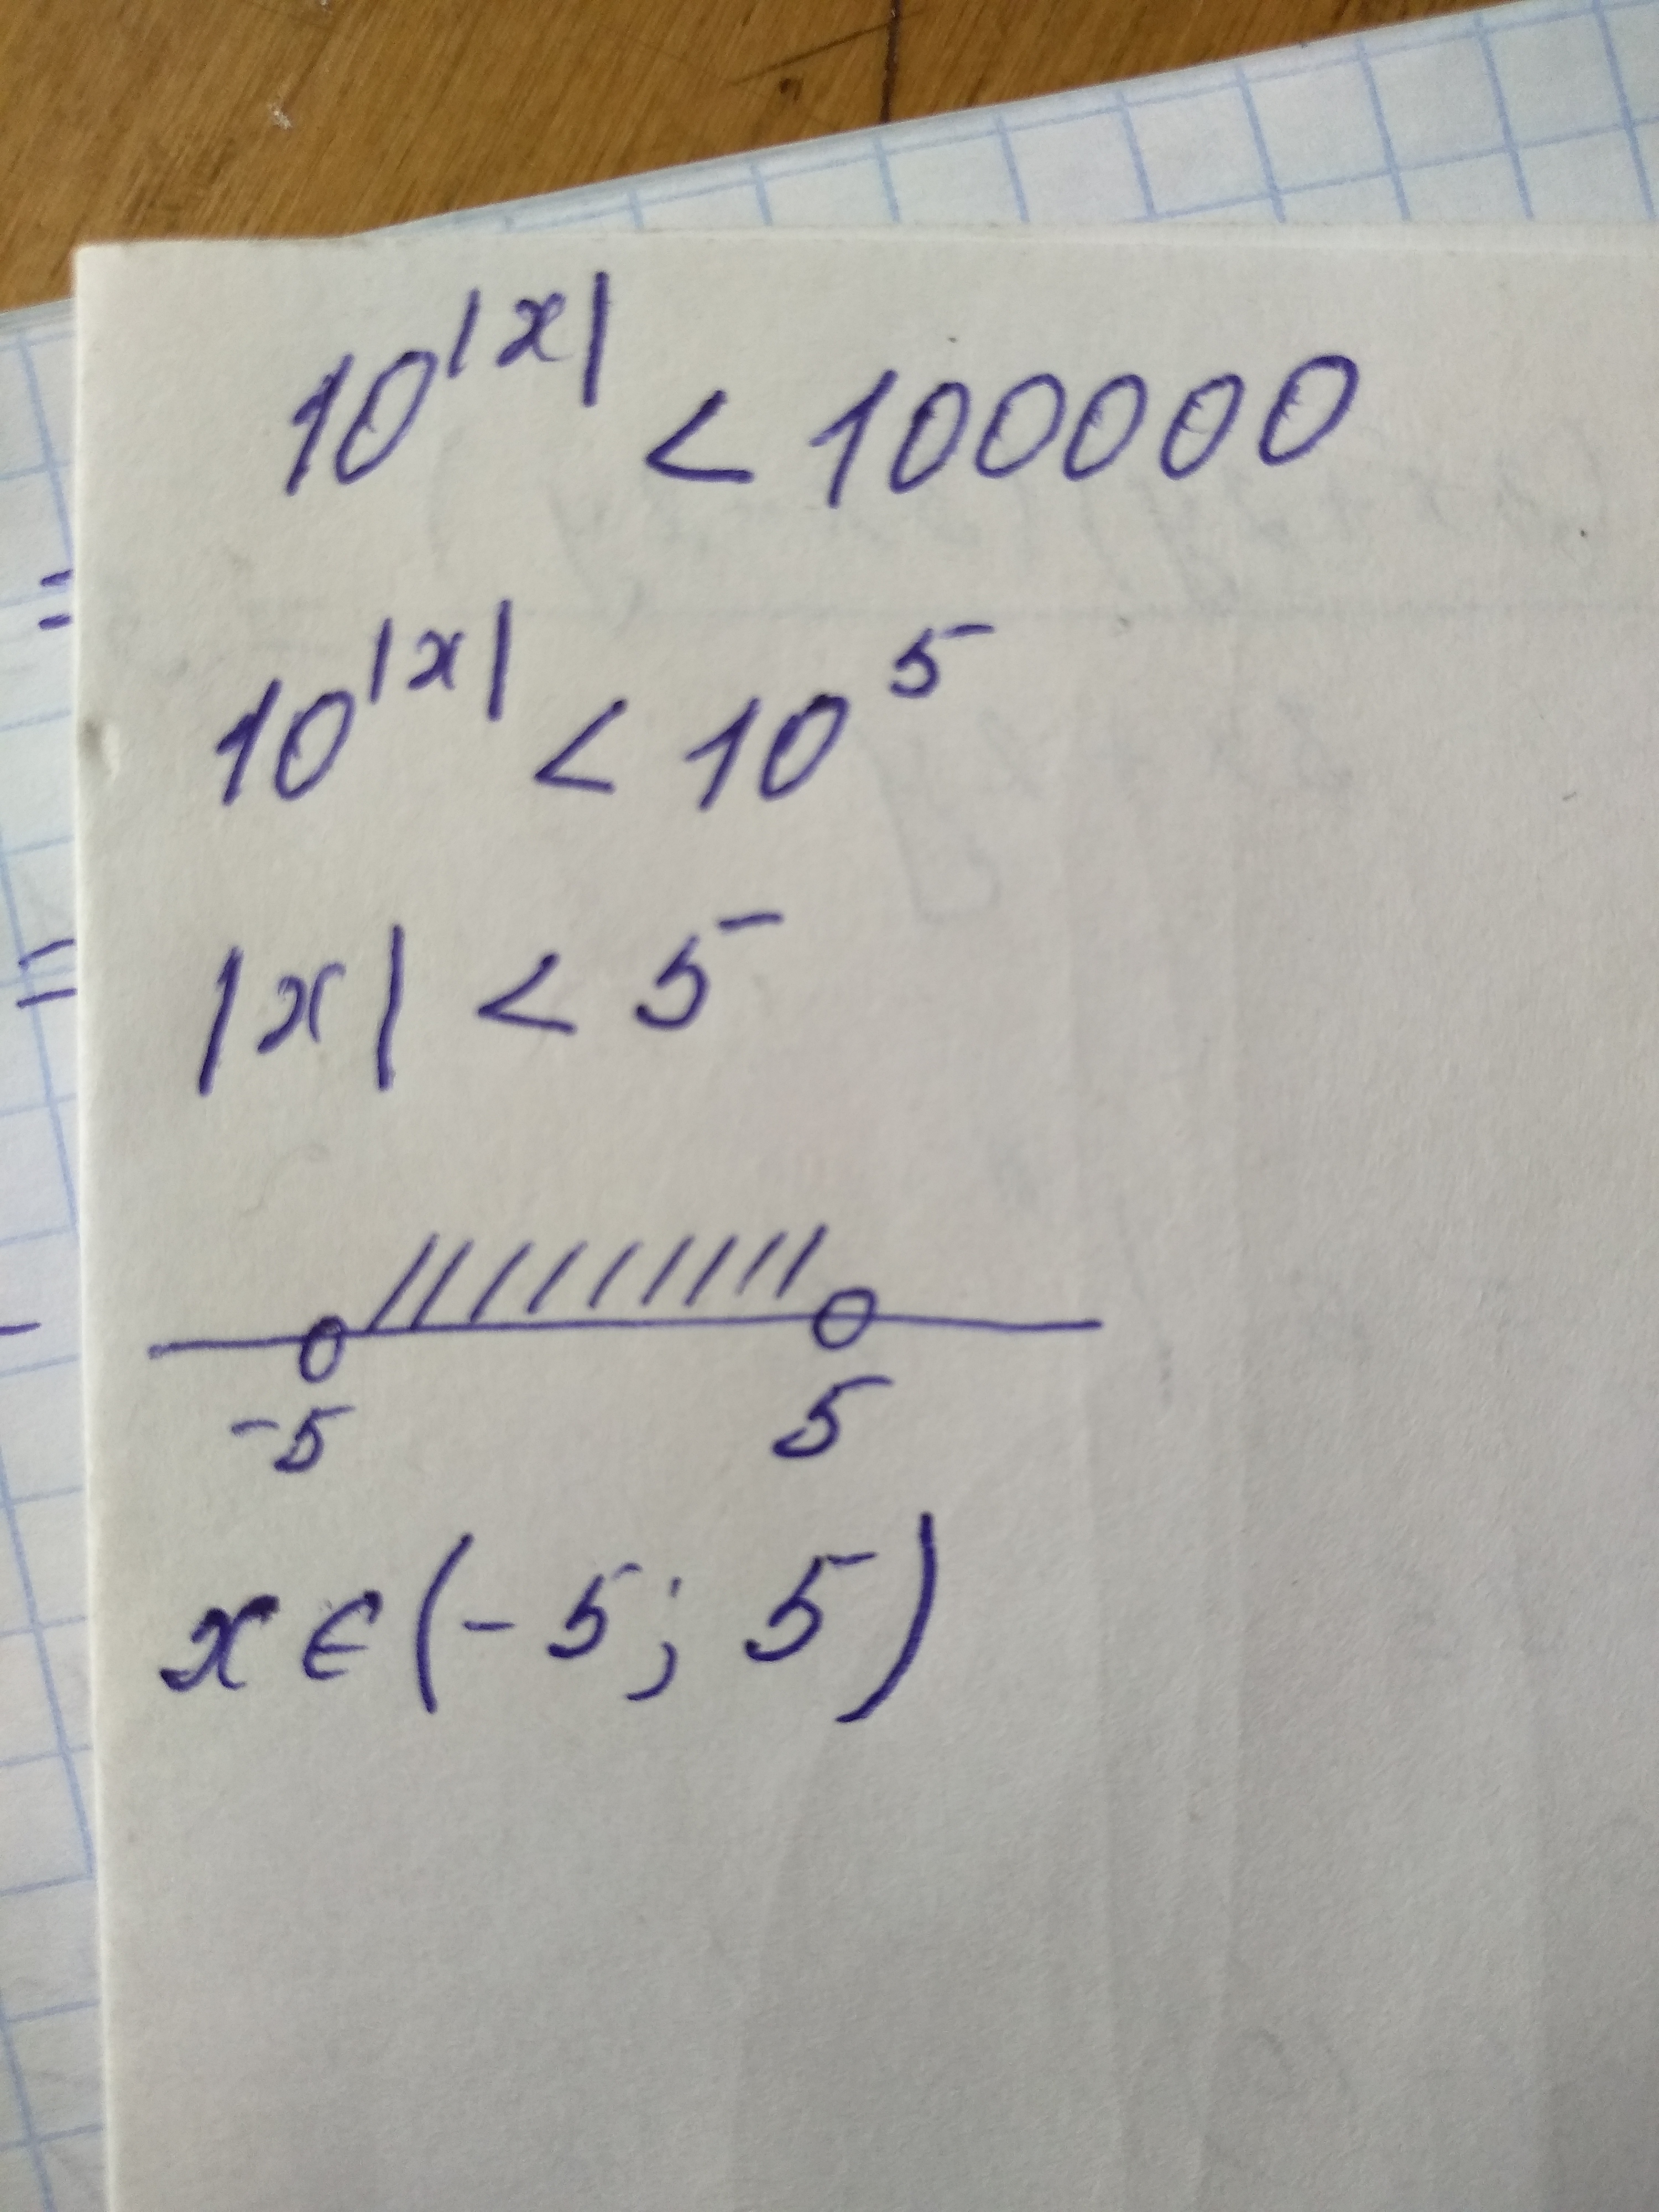 10^|x| < 100000
10^|x| < 10^5
|x| < 5
-5 5
x ∈ (-5; 5)